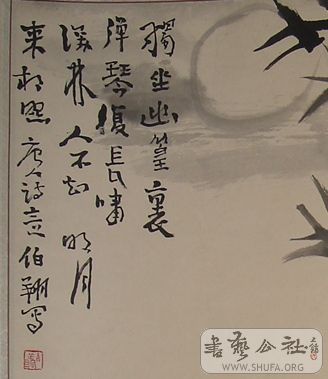 独坐幽篁裏
弹琴復长啸
深林人不知 明月
来相照 唐人诗意 伯翔写
書藝公社
WWW.SHUFA.ORG